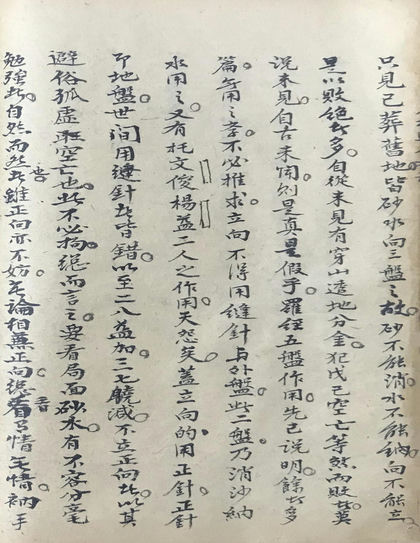 只見已葬舊地皆砂水向三盤之故砂不能消水不能納向不能立
是以敗絕者多自從未見有穿山透地分金犯戊己空亡等煞而敗者莫
說未見自古未聞則是真是假乎羅經五盤作用先已說明餘者多
篇無用之峯不必推求立向不得用縫針与外盤此二盤乃消沙納
水用之又有托文俊楊益二人之作用天怨矣蓋立向的用正針正針
即地盤世間用縫針者皆錯以至二八益加三七驍減不立正向者以其
避俗孤虛敢空亡也此不必拘總而言之要看局面砂水有不容分毫
勉強者自然而然者雖正向亦不妨無論相兼正向總看有情無情衲手